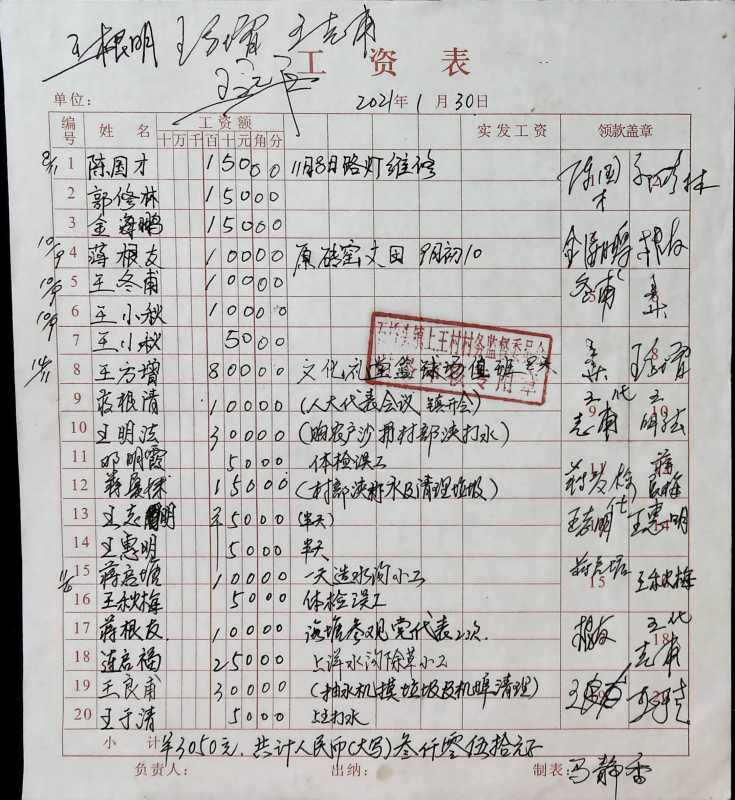 王根明 王方增 王志甫
工 资 表
单位: 2021年 1 月 30日
编号 姓 名 工资额 实发工资 领款盖章
十万千百十元角分
8/11 1 陈国才 15000 11月8日路灯维修 陈国才
2 郭修林 15000
3 金海鹏 15000
10/9 4 蒋根友 10000 原砖窑文田 9月初10 金海鹏 根友
10/9 5 王冬甫 10000 冬甫
10/9 6 王小秋 10000
7 王小秋 5000
镇上王村村务监督委员会
14/11 8 王方增 80000 文化礼堂篮球场值班 8天 王方增
9 蒋根清 10000 (人大代表会议 镇开会) 王志甫代
10 王明法 30000 村部浃打水) 王明法
11 邓明霞 5000 体检误工
12 15000 (村部浃排水及清理垃圾)
13 王志明 5000 (半天) 王志明 代 王惠明
14 王惠明 5000 半天
15 蒋启塘 10000 一天造水沟小工 蒋启塘 王秋梅
16 王秋梅 5000 体检误工
17 蒋根友 10000 参观党代表2次 根友 王志甫代
18 连启福 25000 上洋水沟除草小工
19 王良甫 30000 (抽水机摸垃圾及机埠清理)
20 王于清 5000 打水
小 计 ¥3050元. 共计人民币(大写)叁仟零伍拾元正
负责人: 出纳: 制表: 马静香